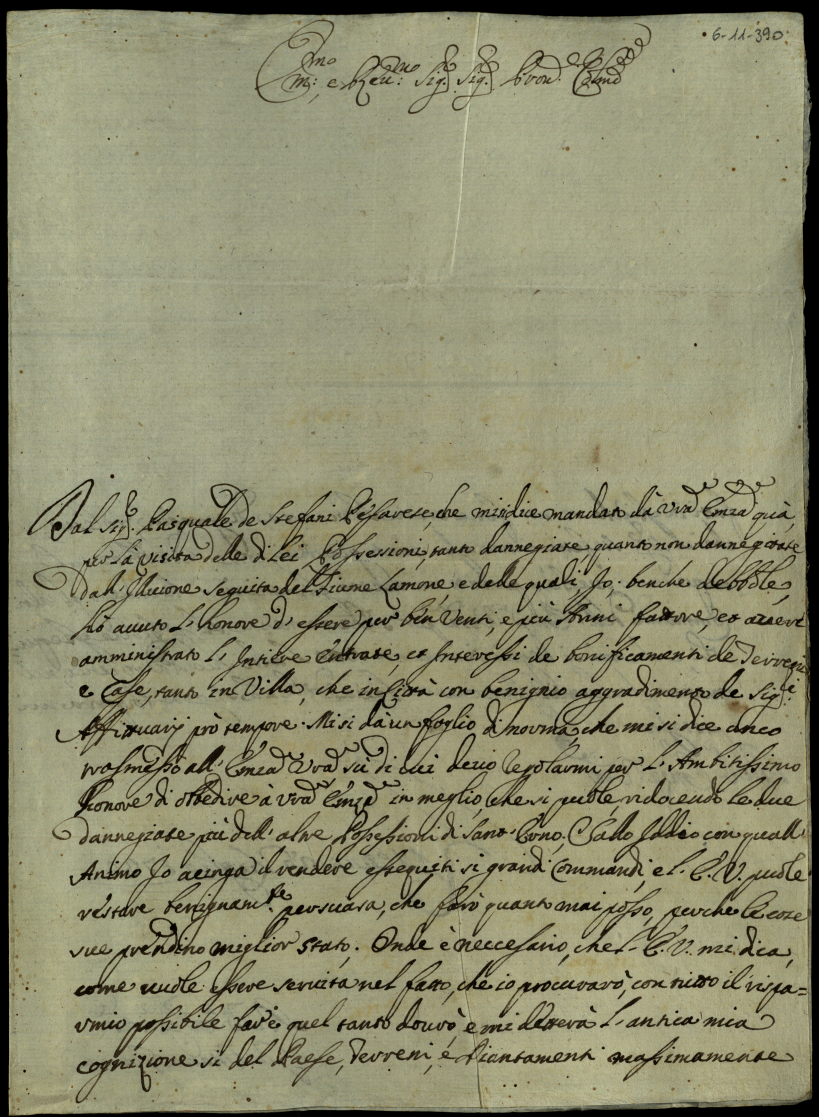 6-11-390
Em:mo e Reu:mo Sig.r Sig.r Pron.e Colmo
Dal Sig.r Pasquale de Stefani Pesarese, che mi si dice mandato dà Vra Emza quà,
per la visita delle di Lei Possessioni, tanto dannegiate quanto non dannegiate
dall' Illuione seguita del Fiume Lamone, e delle quali, Jo, benche debbole,
hò auuto l'honore d'essere per ben Venti, e più Anni fattore, et auere
amministrato l'Intiere Entrate, et Interessi de bonificamenti de Terreni
e Case, tanto in Villa, che in Città con benignio aggradimento de Sig.ri
Affittuarj prò tempore. Mi si dà un foglio di norma, che mi si dice anco
trasmesso all' Emza Vra sù di cui deuo regolarmi per l'Ambitissimo
honore di obbedire à Vra Emza in meglio, che si puole riducendo le due
dannegiate più dell' altre Possessioni di Sant' , Sallo Iddio con quall'
Animo Jo acinga il rendere essequiti si grandi Commandi, e l'E. V. puole
restare benignam.te persuasa, che farò quanto mai posso, perche le cose
sue prendino miglior stato. Onde è neccesario, che l'E. V. mi dica,
come uuole essere seruita nel fatto, che io procurarò, con tutto il rispa=
rmio possibile fare quel tanto dourò, e mi detterà l'antica mia
cognizione si del Paese, Terreni, e Piantamenti massimamente